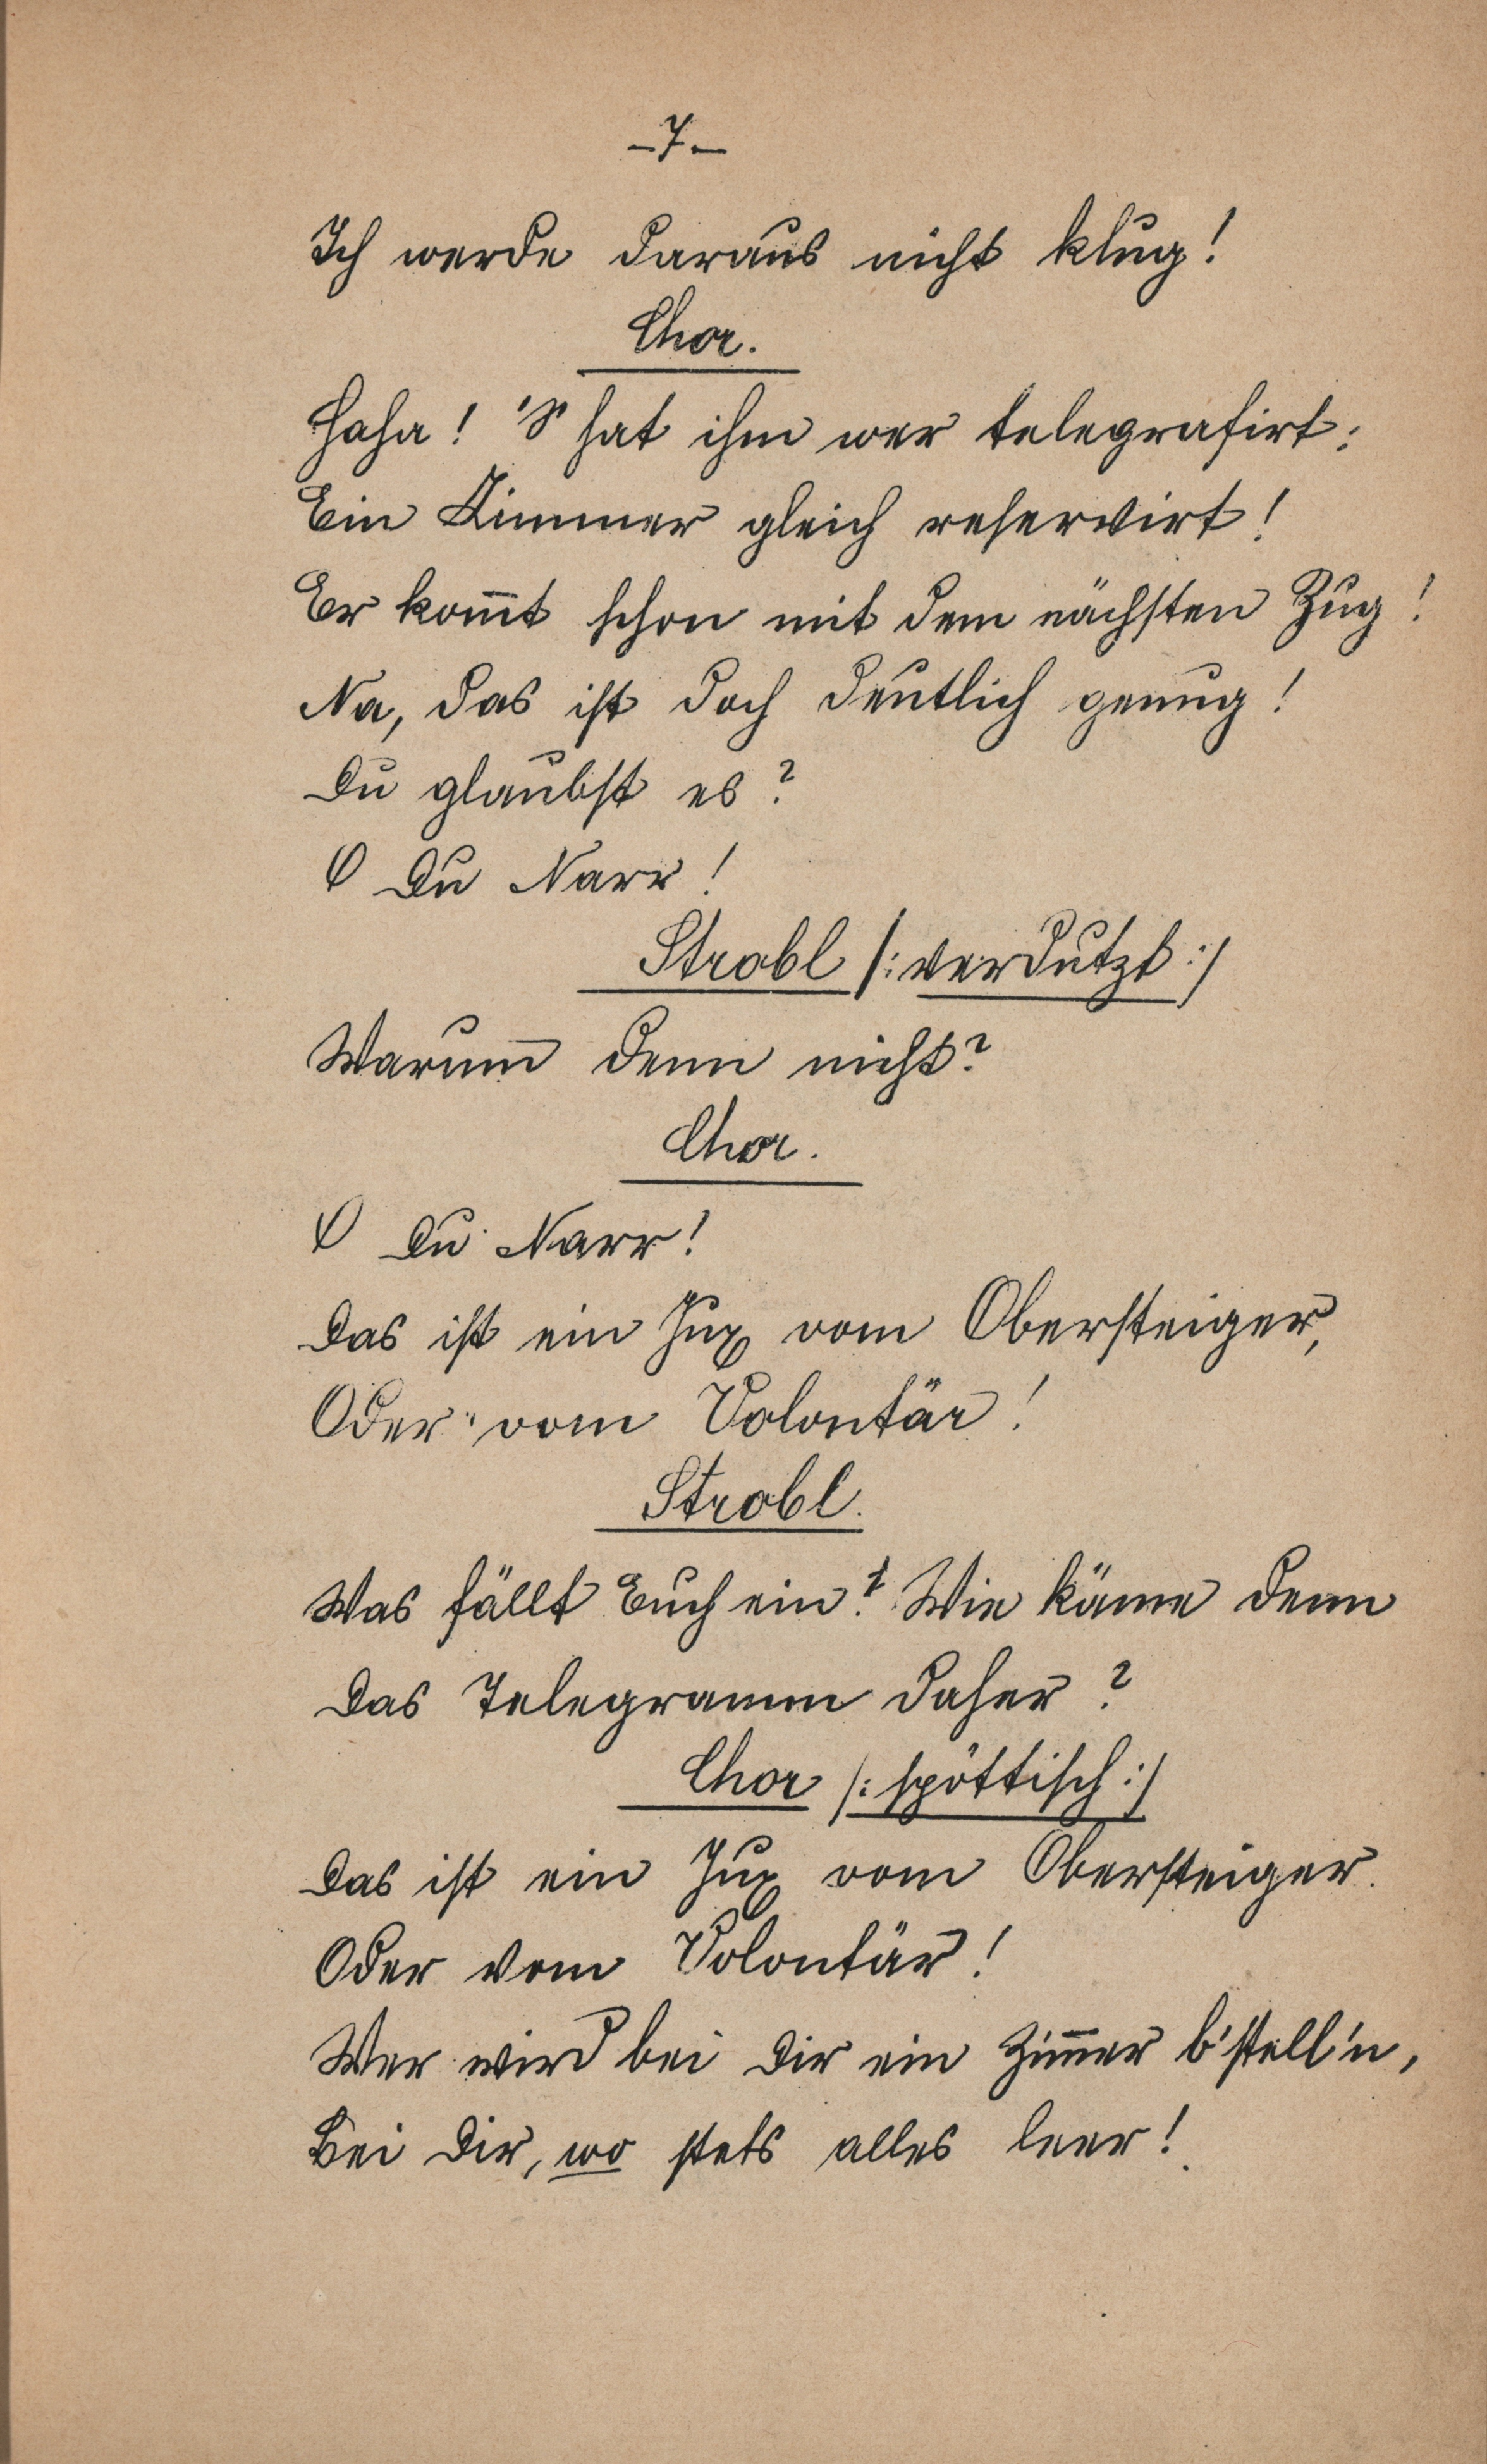 -7-
Ich werde daraus nicht klug!
Chor.
Haha! 'S hat ihm wer telegrafirt:
Ein Zimmer gleich reservirt!
Er kom̄t schon mit dem nächsten Zug!
Na, das ist doch deutlich genug!
Du glaubst es?
O Du Narr!
Strobl /: verdutzt :/
Warum denn nicht?
Chor.
O Du Narr!
Das ist ein Jux vom Obersteiger,
Oder vom Volontär!
Strobl.
Was fällt Euch ein? Wie käme denn
Das Telegramm daher?
Chor /: spöttisch :/
Das ist ein Jux vom Obersteiger.
Oder vom Volontär!
Wer wird bei Dir ein Zim̄er b'stell'n,
Bei Dir, wo stets alles leer!